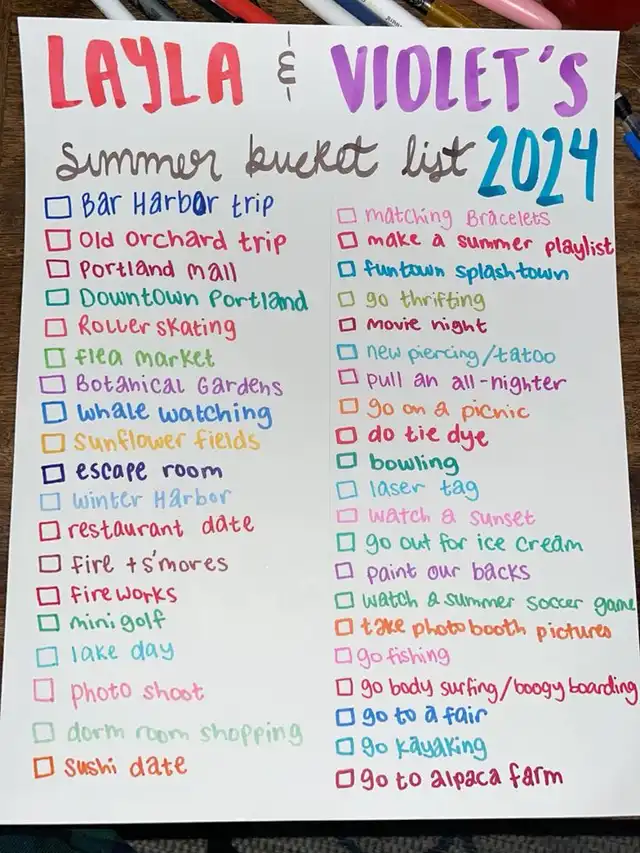 LAYLA & VIOLET'S
summer bucket list 2024
Bar Harbor trip
Old Orchard trip
Portland mall
Downtown Portland
Roller skating
flea market
Botanical Gardens
whale watching
sunflower fields
escape room
winter Harbor
restaurant date
fire + s'mores
fireworks
mini golf
lake day
photo shoot
dorm room shopping
sushi date
matching Bracelets
make a summer playlist
funtown splashtown
go thrifting
movie night
new piercing/tatoo
pull an all-nighter
go on a picnic
do tie dye
bowling
laser tag
watch a sunset
go out for ice cream
paint our backs
watch a summer soccer game
take photobooth pictures
go fishing
go body surfing/boogy boarding
go to a fair
go kayaking
go to alpaca farm